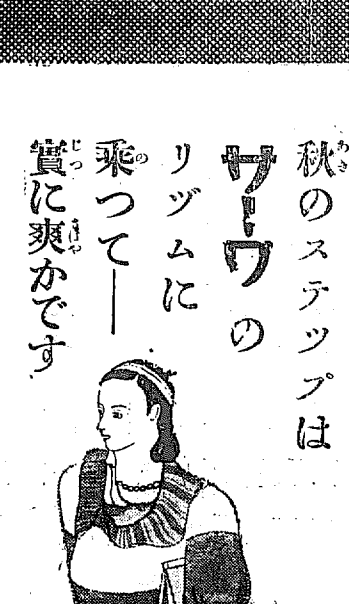 秋のステツプは
サーワの
リヅムに
乗つて──
實に爽かです